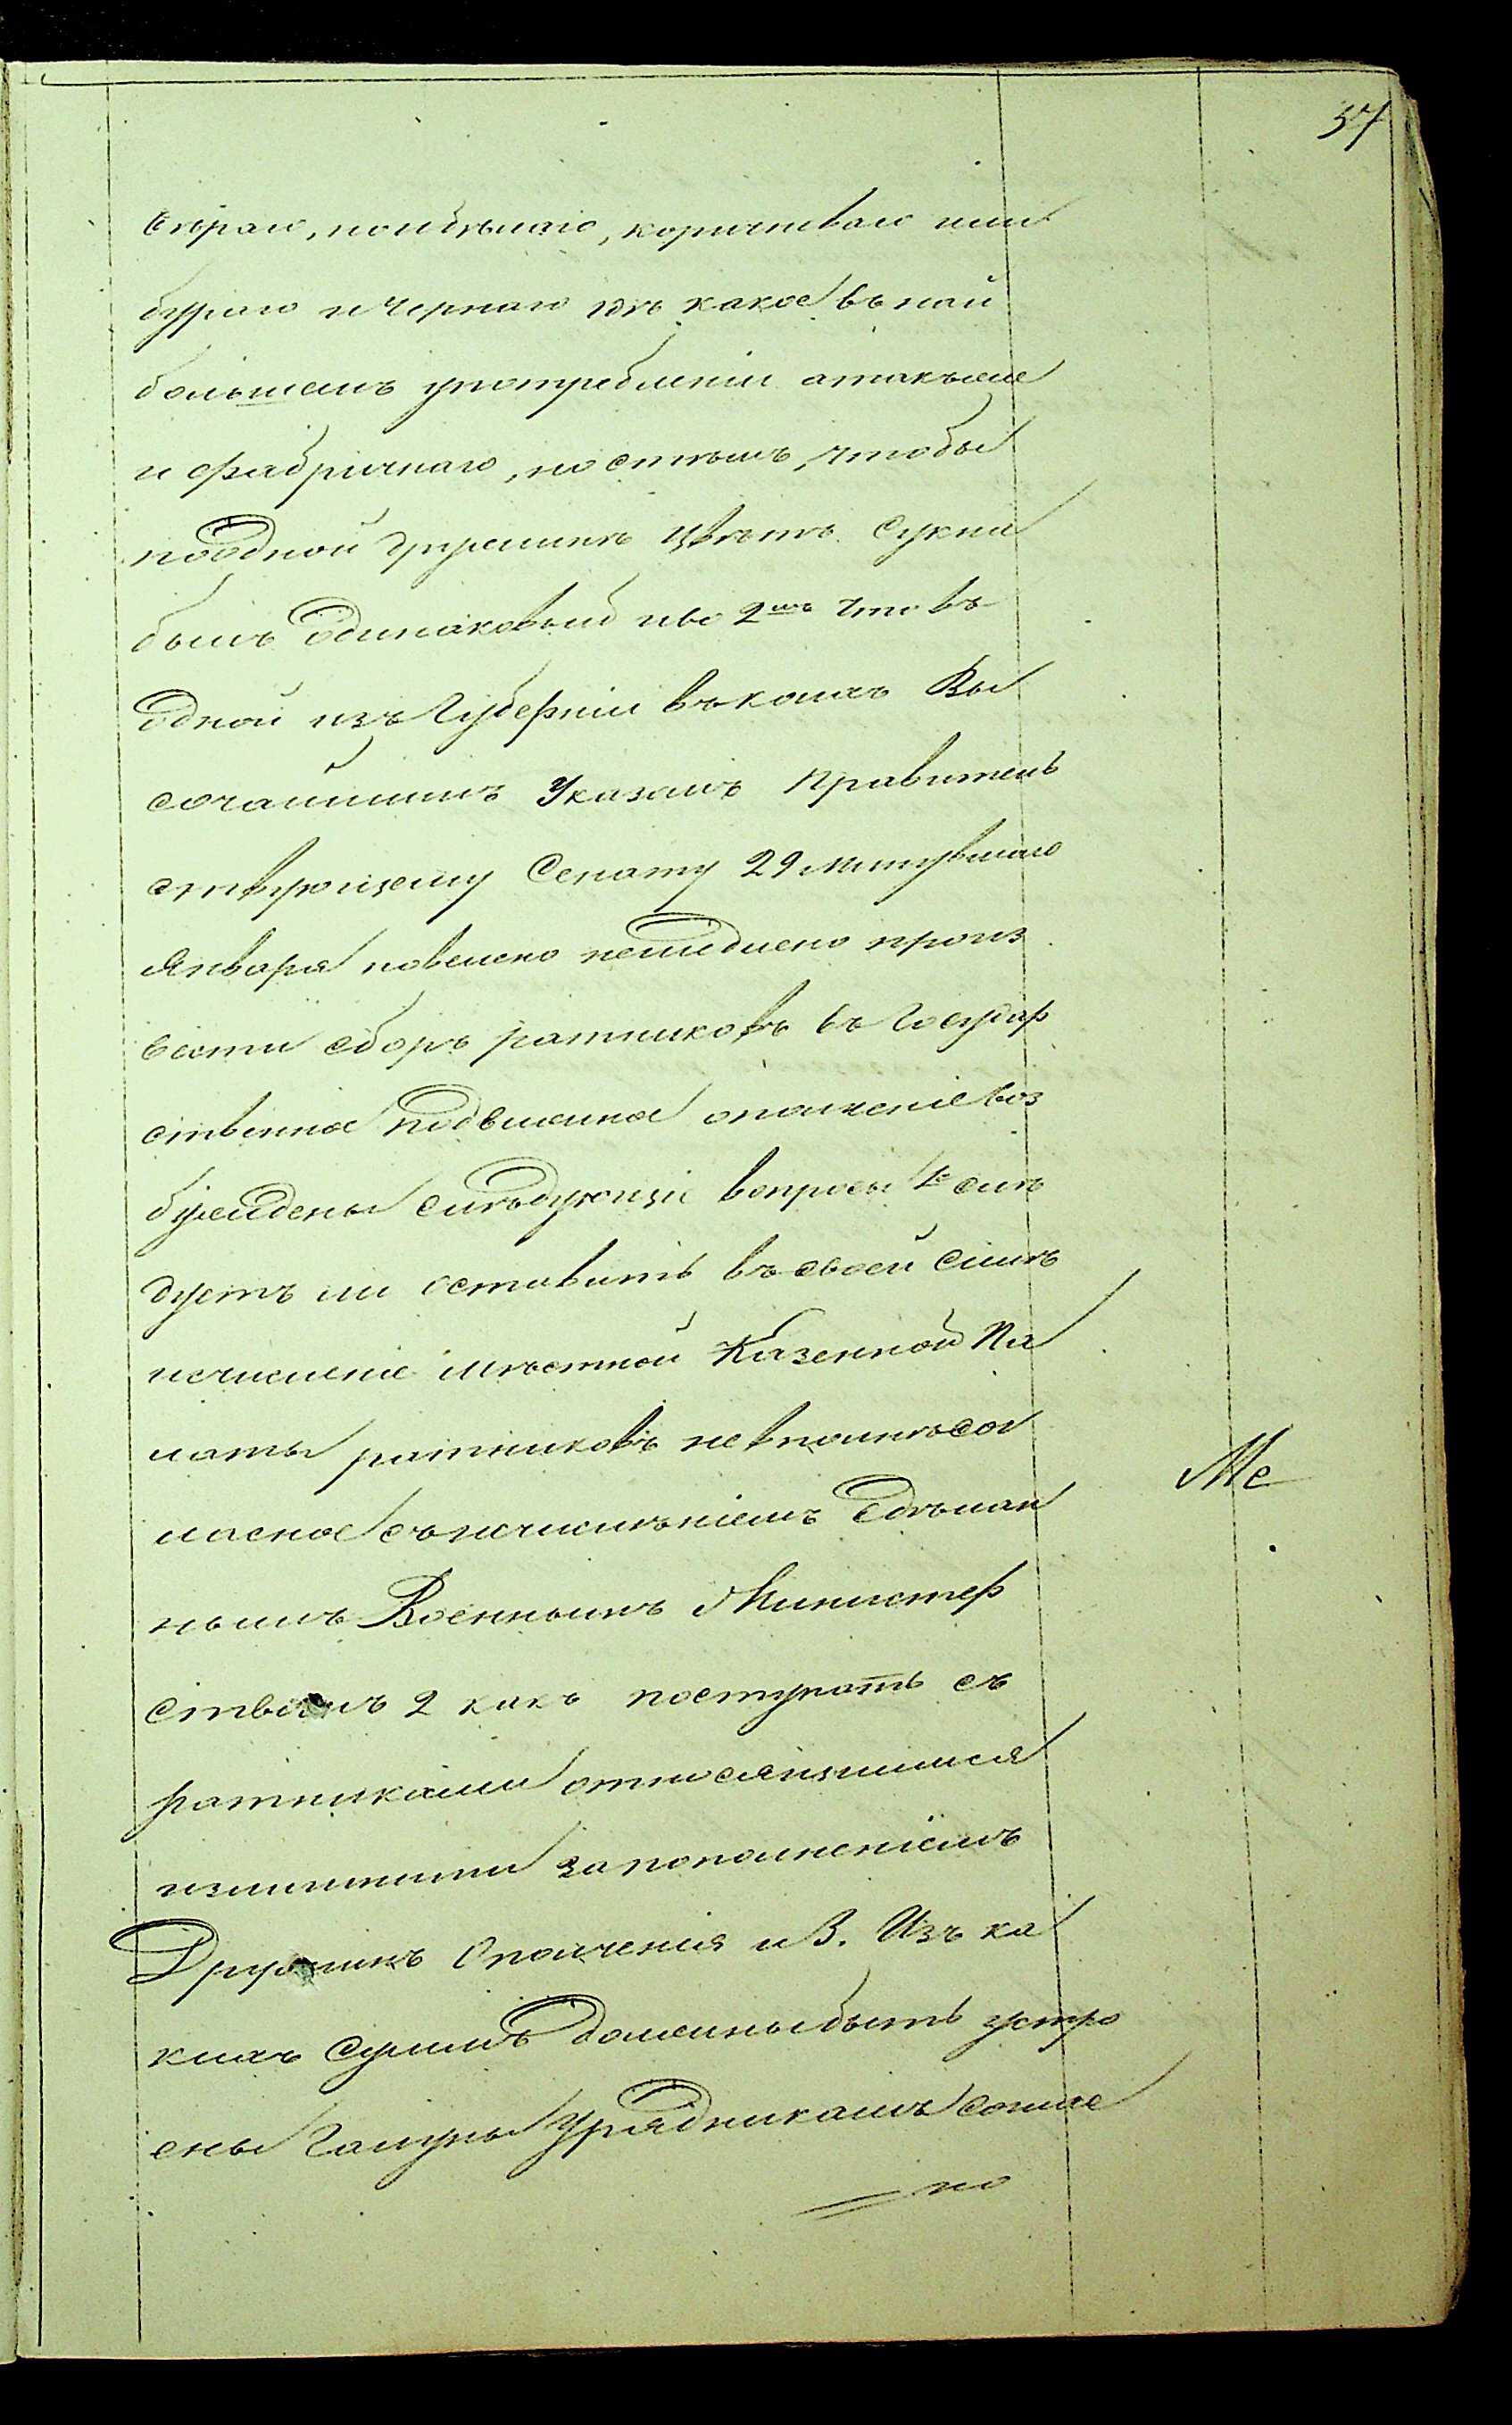 57
сѣраго, полибѣлаго, коричневаго или
бураго и чернаго гдѣ какое въ най
большемъ употребленіи а также
и фабричнаго, но стѣмъ, чтобы
поодной дружинѣ цвѣтъ сукна
былъ одинаковый иво 2мъ что въ
одной изъ Губерній въ коихъ Вы
сочайшимъ Указомъ Правитель
ствующему Сенату 29 минувшаго
Января повелено немедлено произ
вести сборъ ратниковъ въ Государ
ственное подвижное ополченіе воз
буждены слѣдующіе вопросы 1е слѣ
дуетъ ли оставить въ своей силѣ
исчисленіе мѣстной Казенной Па
латы ратниковъ невполнѣ сог
ласное съ исчислѣніемъ сдѣлан
нымъ Военнымъ Министер
ствомъ 2 какъ поступать съ
ратниками относящимися
излишними запополненіемъ
Дружинъ Ополченія и 3. Изъ ка
кихъ суммъ должны быть устро
ены Галуны Урядникамъ собстве
но
Ме